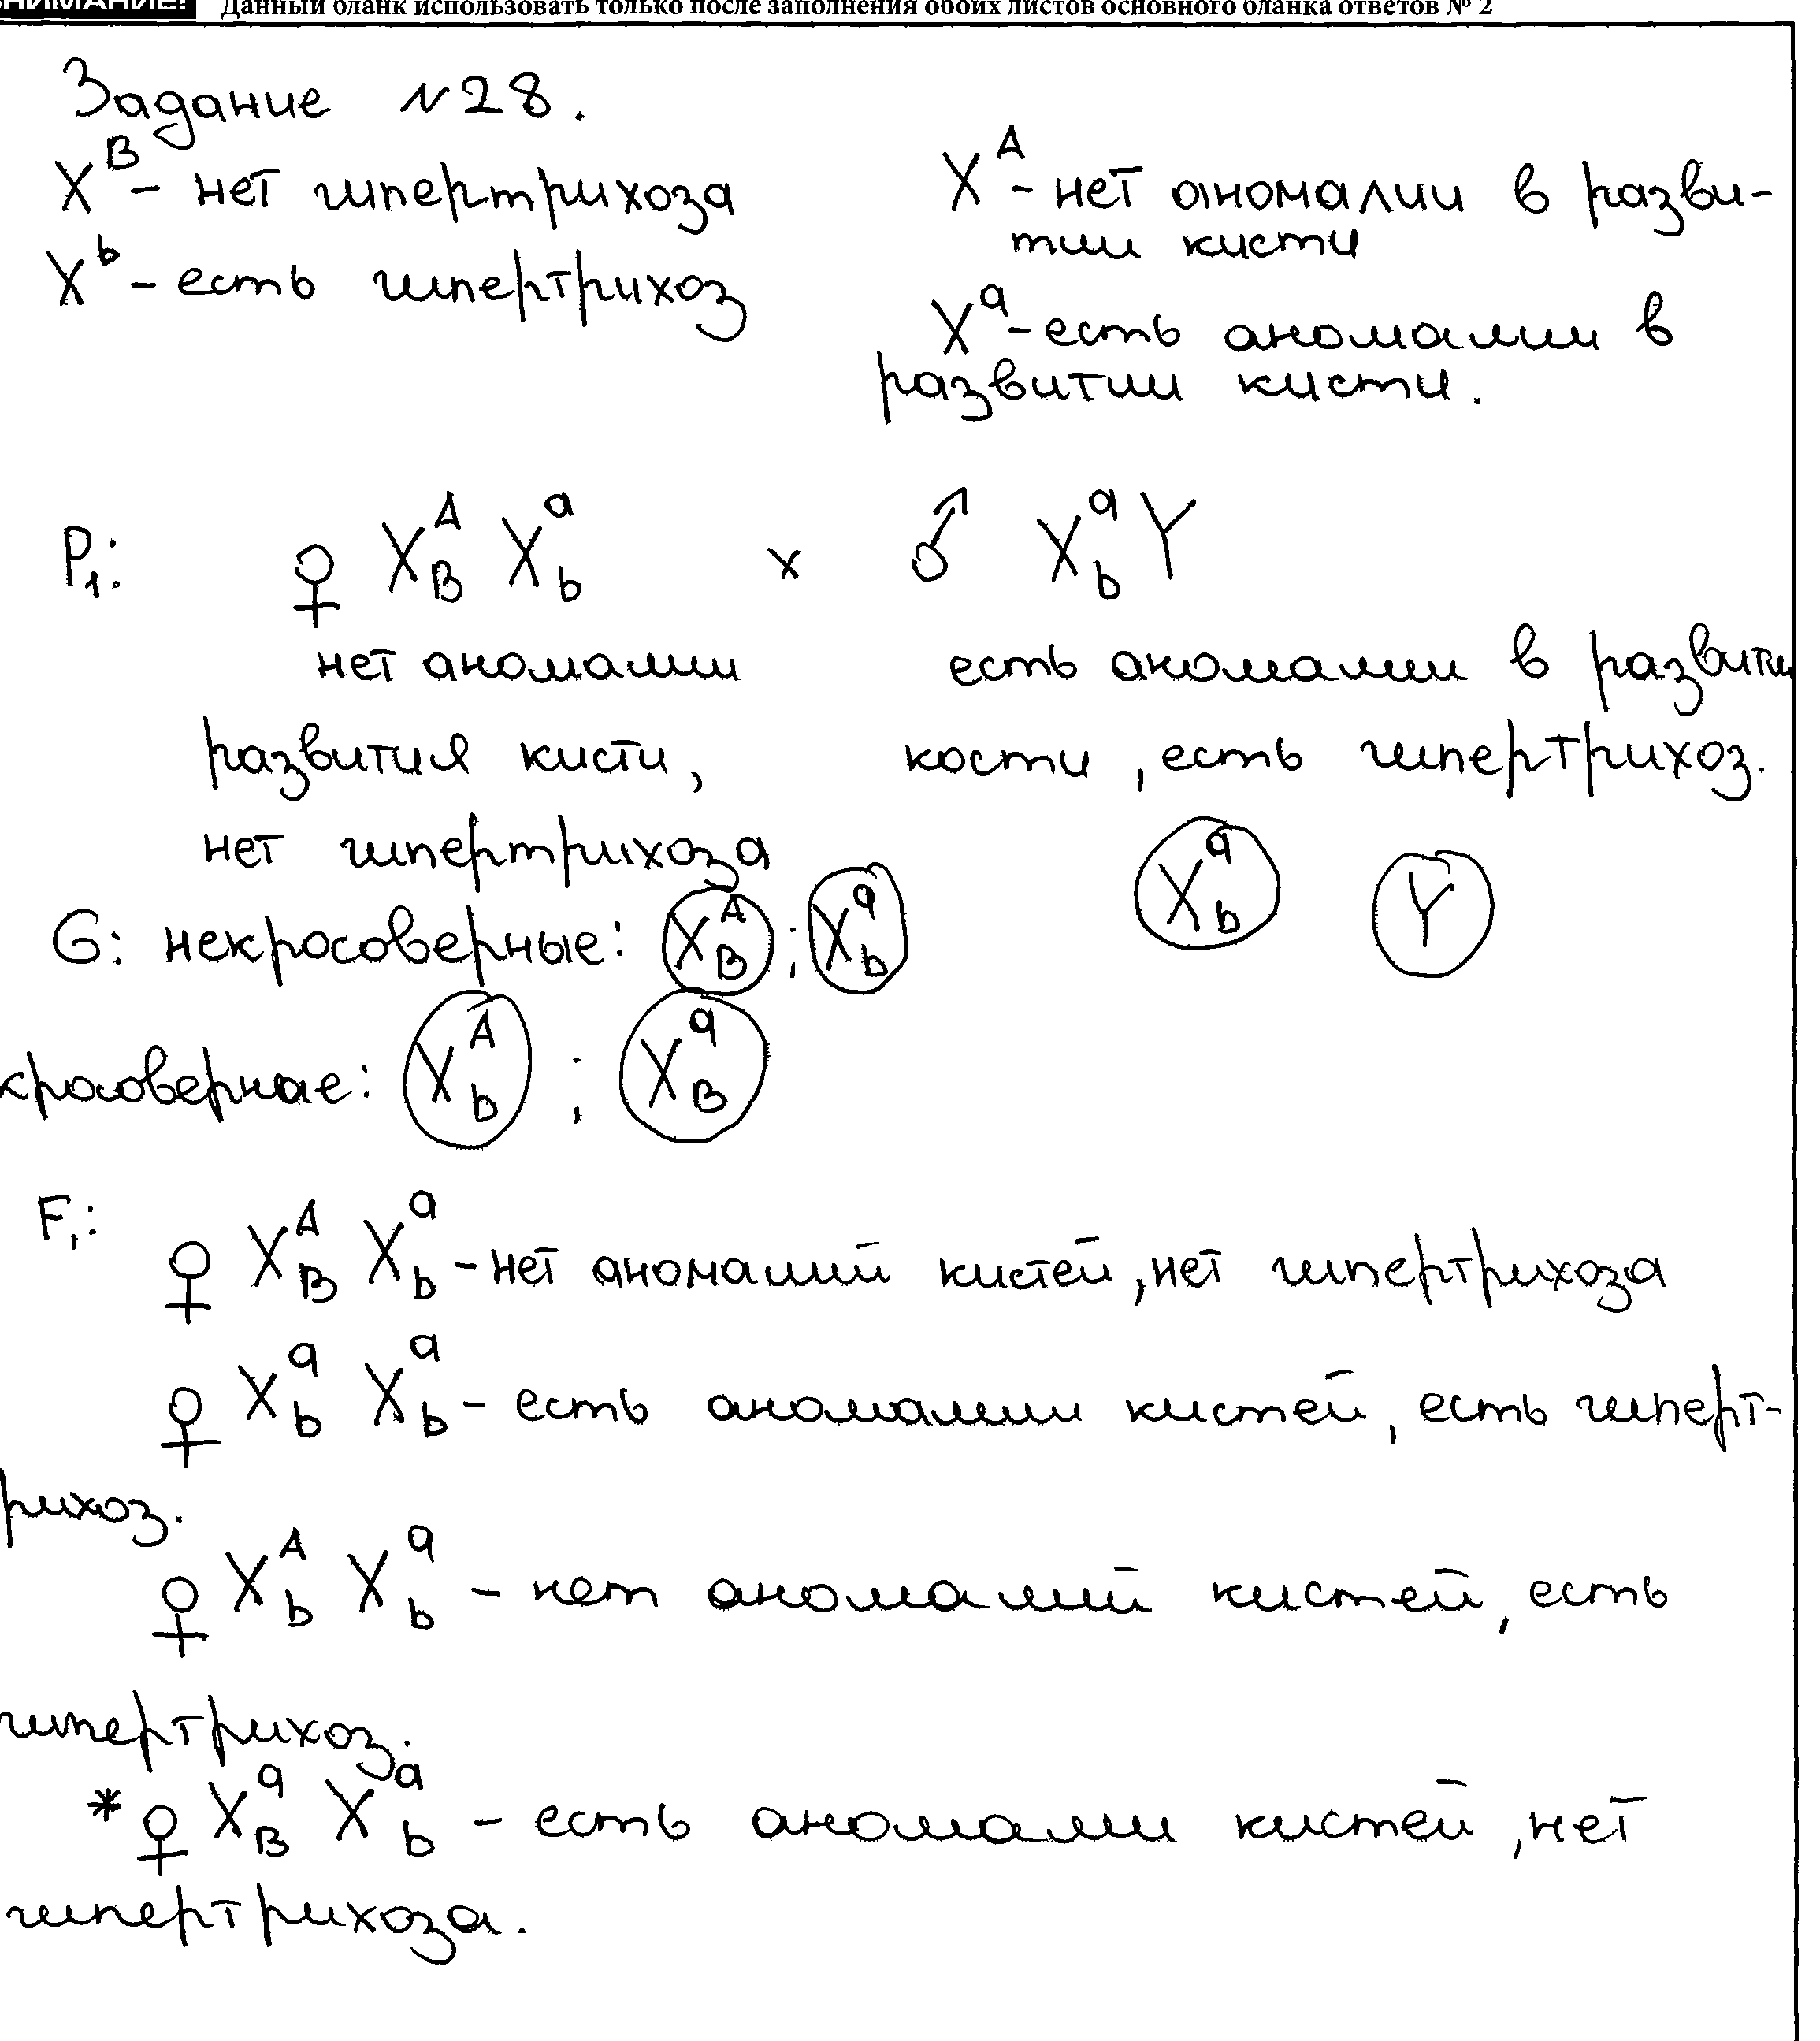 ВНИМАНИЕ! Данный бланк использовать только после заполнения обоих листов основного бланка ответов № 2
Задание №28.
X^B – нет гипертрихоза
X^b – есть гипертрихоз
X^A – нет аномалии в разви-
тии кисти
X^a – есть аномалии в
развитии кисти.
P₁: ♀ X^A_B X^a_b x ♂ X^a_b Y
нет аномалии есть аномалии в развити
развития кисти, кости, есть гипертрихоз.
нет гипертрихоза
G: некросоверные: X^A_B ; X^a_b X^a_b Y
кросоверные: X^A_b ; X^a_B
F₁: ♀ X^A_B X^a_b – нет аномалий кистей, нет гипертрихоза
♀ X^a_b X^a_b – есть аномалии кистей, есть гиперт-
рихоз.
♀ X^A_b X^a_b – нет аномалий кистей, есть
гипертрихоз.
* ♀ X^a_B X^a_b – есть аномалии кистей, нет
гипертрихоза.